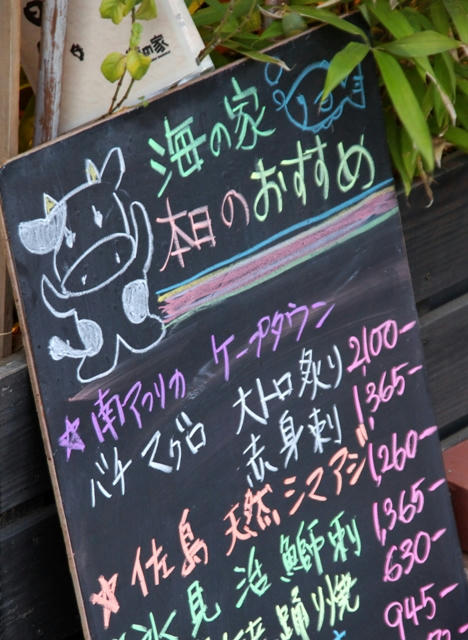 海の家
本日のおすすめ
★南アフリカ ケープタウン
バチマグロ 大トロ炙り 2,100-
赤身刺 1,365-
★佐島 天然シマアジ 1,260-
氷見 活鰤刺 1,365-
踊り焼 630-
945-